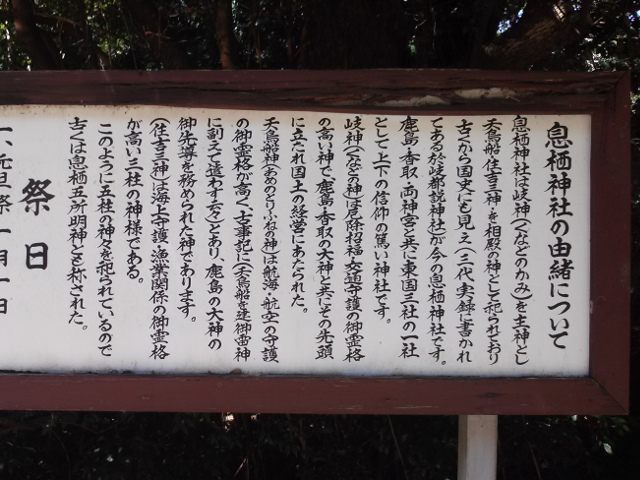 息栖神社の由緒について
息栖神社は岐神（くなどのかみ）を主神とし
天鳥船 住吉三神を相殿の神として祀られており
古くから国史にも見え（三代実録に書かれ
てある於岐都説神社）が今の息栖神社です。
鹿島・香取両神宮と共に東国三社の一社
として上下の信仰の篤い神社です。
岐神（くなどの神）は厄除招福・交通守護の御霊格
の高い神で、鹿島・香取の大神と共にその先頭
に立たれ国土の経営にあたられた。
天鳥船神（あめのとりふねの神）は航海・航空の守護
の御霊格が高く、古事記に（天鳥船を建御雷神
に副えて遣わす云々）とあり、鹿島の大神の
御先導を務められた神であります。
（住吉三神）は海上守護・漁業関係の御霊格
が高い三柱の神様である。
このように五柱の神々を祀られているので
古くは息栖五所明神とも称された。
祭日
一、元旦祭 一月一日